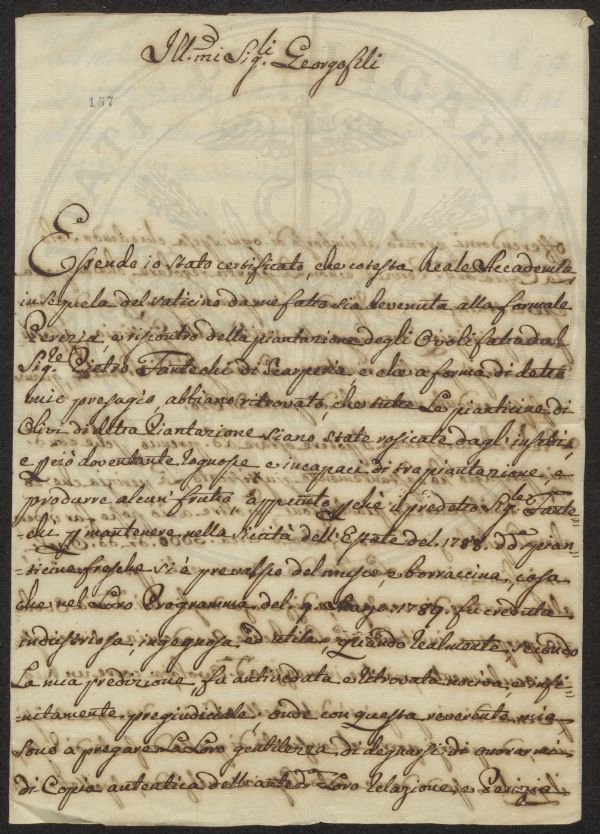 Ill.mi Sig.li Georgofili
157
Essendo io stato certificato, che cotesta Reale Accademia
in sequela del Vaticino da me fato sia devenuta alla formale
Perizia, o riscontro della piantazione degli Ovoli fata dal
Sig.re Pietro Fantechi di Scarperia e che a forma di detto
mio presagio abbiano ritrovato, che tutte Le pianticine di
Olivi di detta Piantazione siano state rosicate dagl' insetti,
e p ciò doventante e incapaci di trapiantazione, e
produrre alcun fruto, appunto p chè il predetto Sig.re Fante-
chi p mantenere nella siccità dell' Estate del 1788. dd. pian-
ticine fresche si è prevalso del musco, e borraccina, cosa
che nel Loro Programma del 4. Marzo 1789. fu creduta
industriosa, ingegnosa, ed utile. Quando realmente, secondo
La mia predizione, fu antiveduta e ritrovata nociva, ed infi-
nitamente pregiudiciale, onde con questa reverente mie
sono a pregare La Loro gentilenza, di degnarsi di onorarmi
di Copia autentica dell' ante d.a Loro Relazione, e Perizia